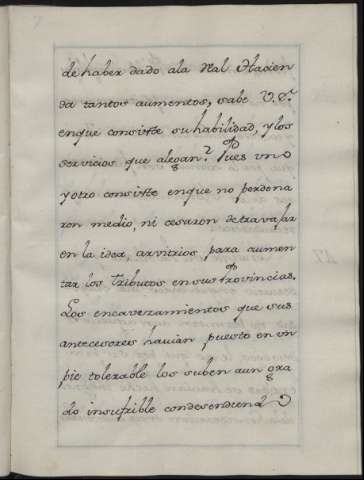 de haber dado ala Ral Hacien
da tantos aumentos, sabe V.S.
enque consiste su habilidad, y los
servicios que alegan? Pues uno
y otro consiste enque no perdona
ron medio, ni cesaron de travajar
en la idea, arvitrios para aumen
tar los tributos en sus Provincias.
Los encavezamientos que sus
antecesores havian puesto en un
pie tolerable los suben aun gra
do insufrible condesendiend